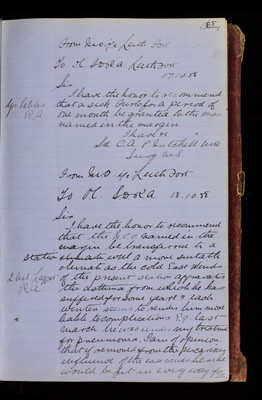 85
From M.O. i/c Leith Fort
To O.C. S.D.R.A. Leith Fort
17.10.88
Sir
I have the honor to recommend
Gr Vebles that a sick furlo for a period of
R.A. one month be granted to the man
named in the margin
I have &c
Sd C.A. P. Mitchell MD
Surg M.S.
From M.O. i/c Leith Fort
To O.C. S.D.R.A. 18.10.88
Sir
I have the honor to recommend
that the NCO named in the
margin be transferred to a
station with a more suitable
climate as the cold East winds
of the present station aggravate
R.A. the asthma from which he has
suffered for some years & each
winter seems to render him more
liable to complications E.g. last
March he was under my treatment
for pneumonia. I am of opinion
that if removed from the
influence of the he
would be fit in every way for